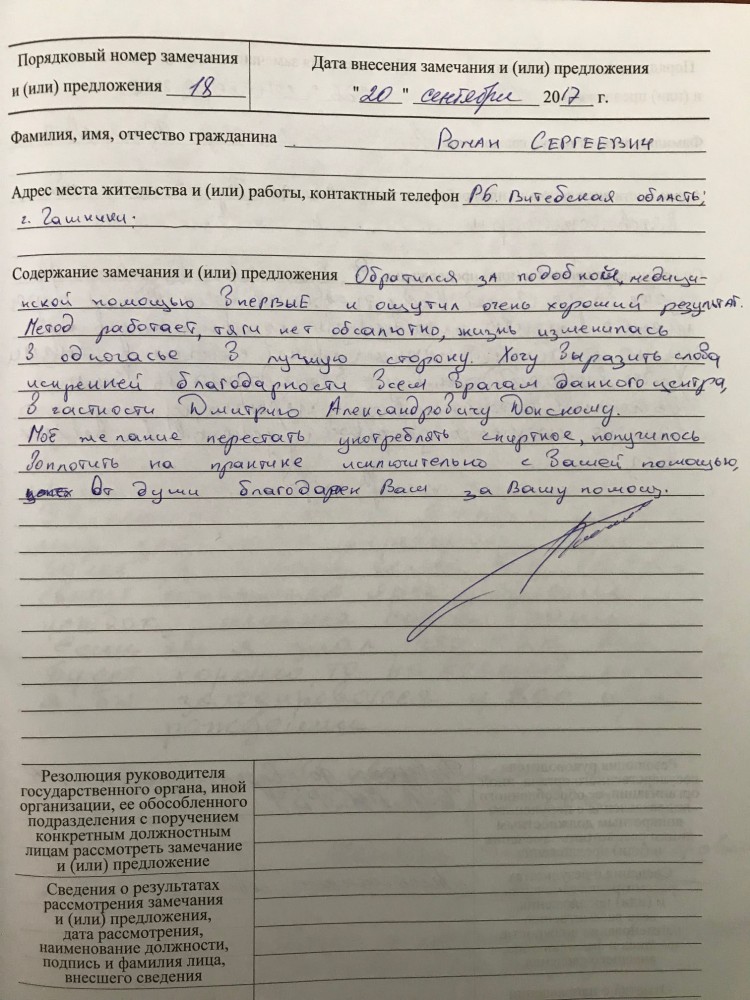 Порядковый номер замечания
и (или) предложения 18
Дата внесения замечания и (или) предложения
"20" сентября 2017 г.
Фамилия, имя, отчество гражданина Роман Сергеевич
Адрес места жительства и (или) работы, контактный телефон РБ. Витебская область;
г.
Содержание замечания и (или) предложения Обратился за подобной, медици-
нской помощью впервые и ощутил очень хороший результат.
Метод работает, тяги нет обсалютно, жизнь изменилась
в одночасье в лучшую сторону. Хочу выразить слова
искренней благодарности всем врачам данного центра,
в частности Дмитрию Александровичу Донскому.
Моё желание перестать употреблять спиртное, получилось
воплотить на практике исключительно с Вашей помощью,
От души благодарен Вам за Вашу помощ.
Резолюция руководителя
государственного органа, иной
организации, ее обособленного
подразделения с поручением
конкретным должностным
лицам рассмотреть замечание
и (или) предложение
Сведения о результатах
рассмотрения замечания
и (или) предложения,
дата рассмотрения,
наименование должности,
подпись и фамилия лица,
внесшего сведения